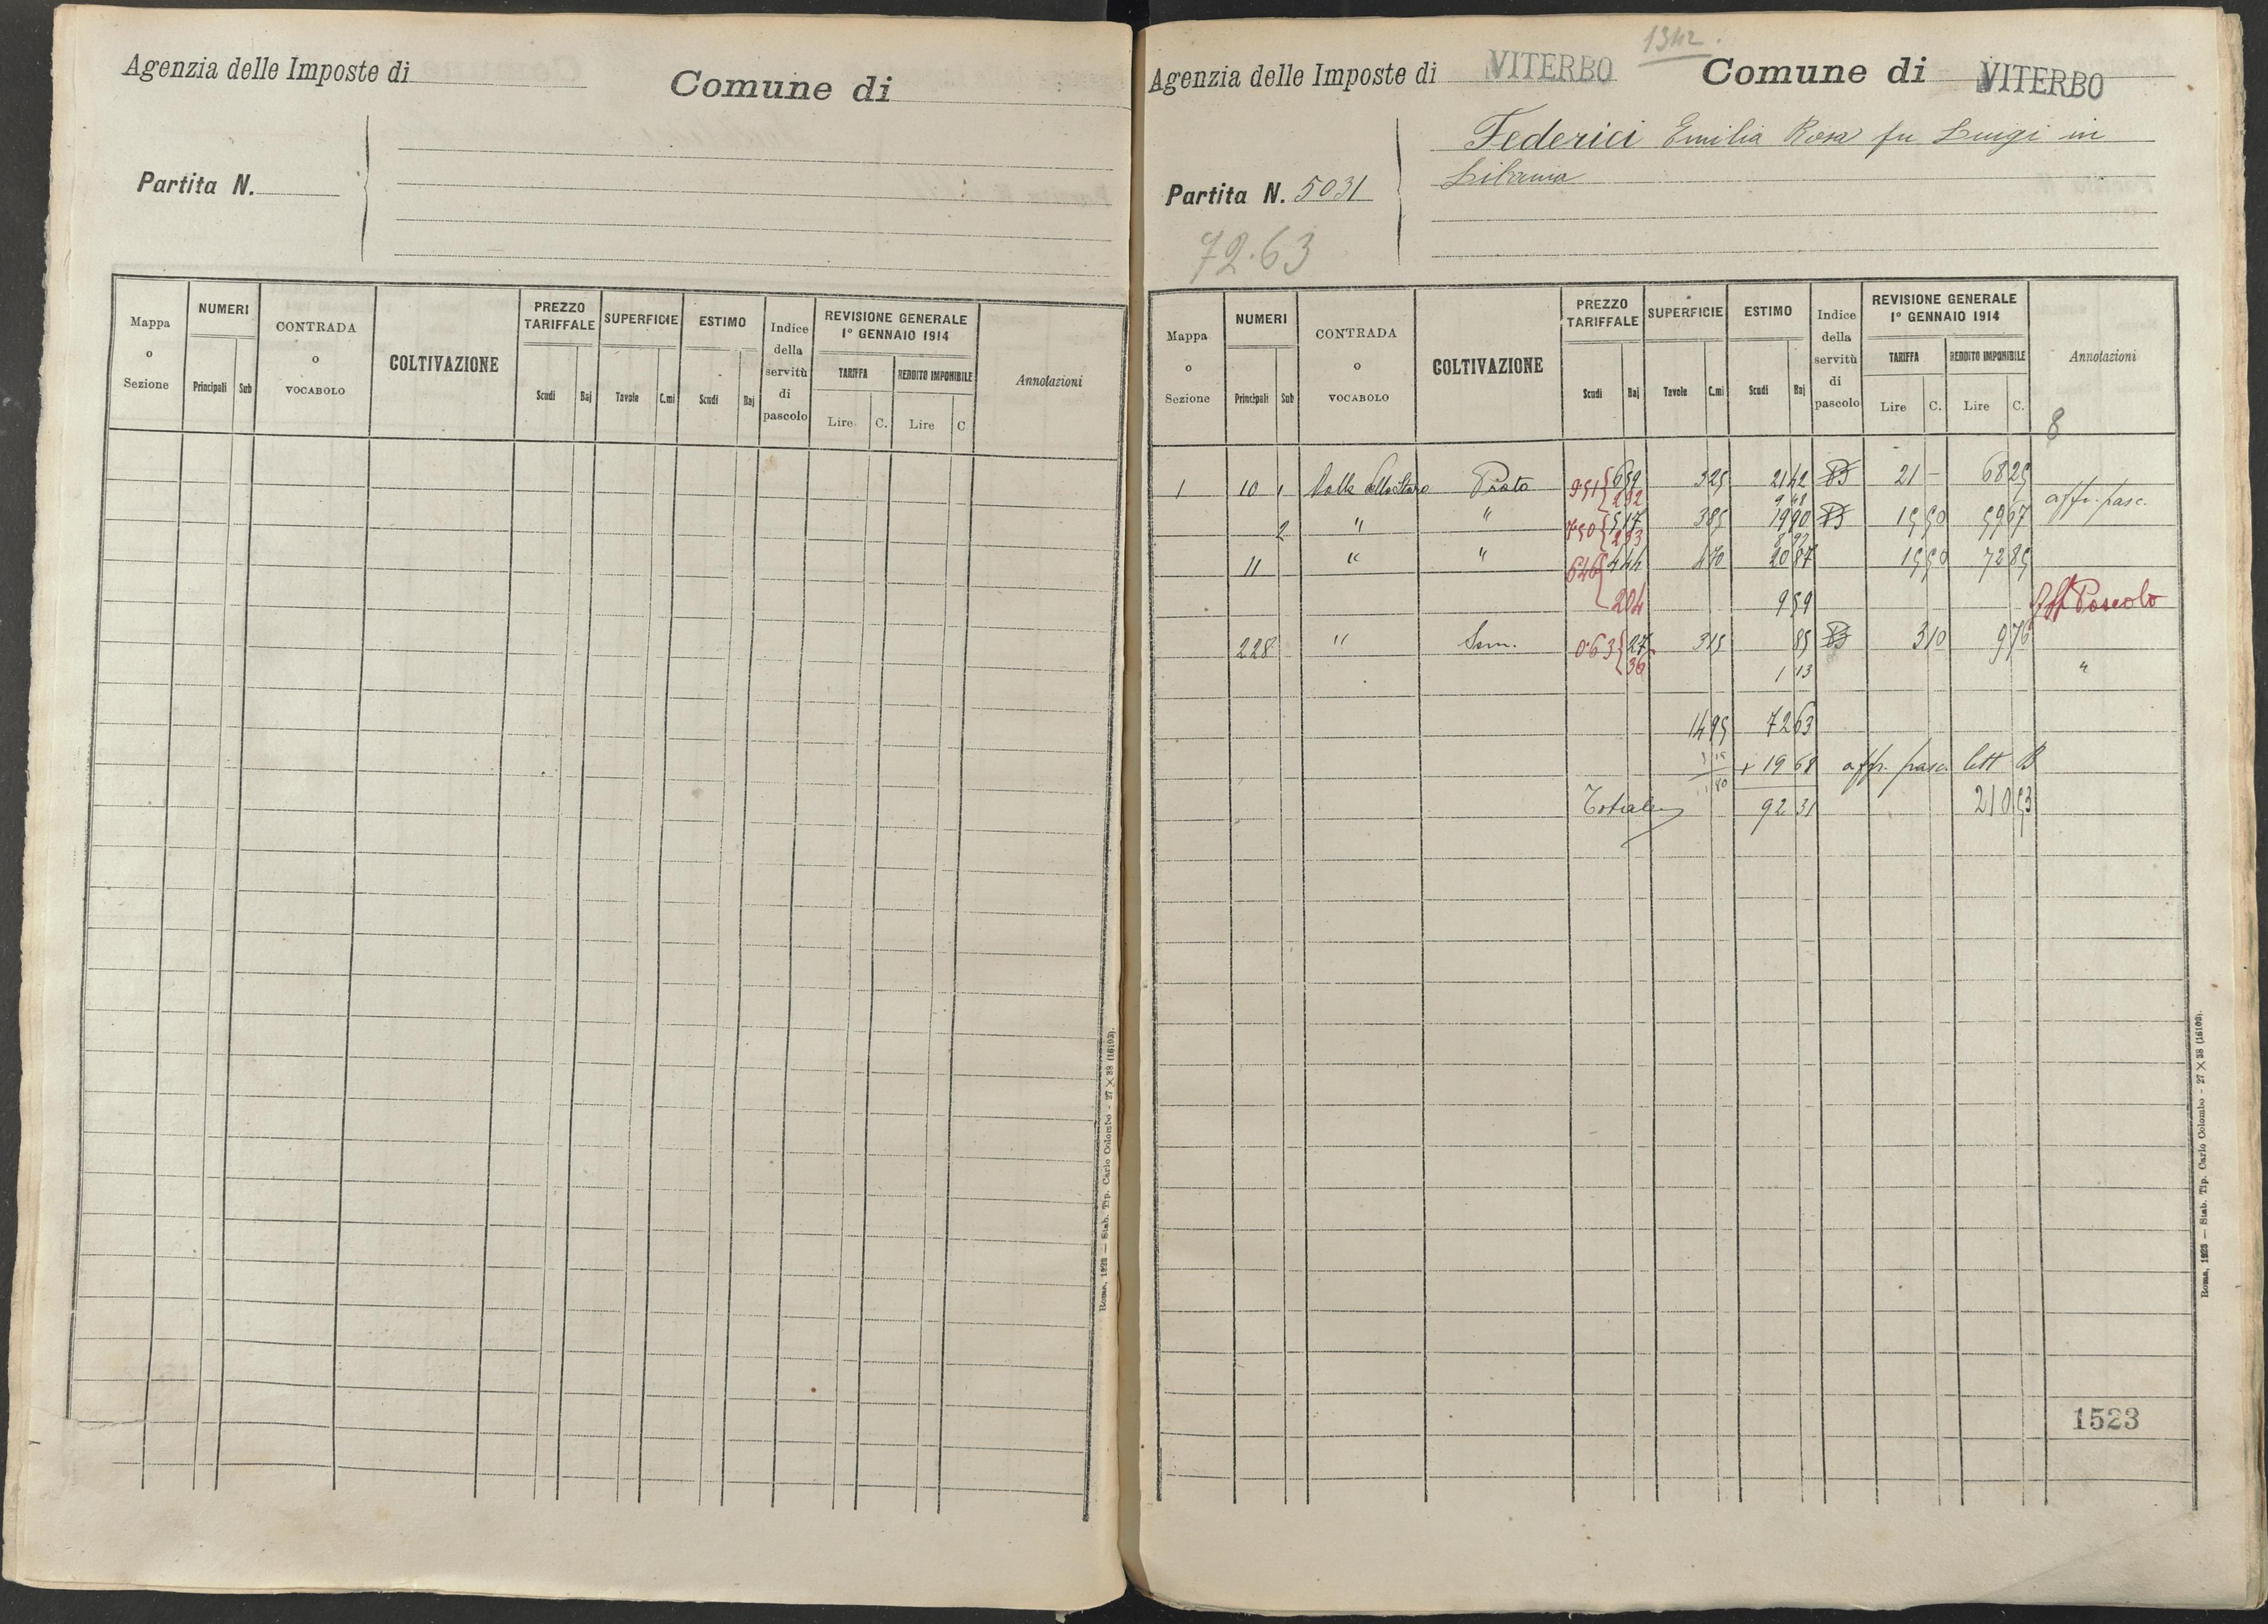 Agenzia delle Imposte di
Comune di
Partita N.
Mappa o Sezione
NUMERI
Principali Sub
CONTRADA o VOCABOLO
COLTIVAZIONE
PREZZO TARIFFALE
Scudi Baj
SUPERFICIE
Tavole C.mi
ESTIMO
Scudi Baj
Indice della servitù di pascolo
REVISIONE GENERALE 1° GENNAIO 1914
TARIFFA
Lire C.
REDDITO IMPONIBILE
Lire C
Annotazioni
Roma, 1923 — Stab. Tip. Carlo Colombo - 27 × 38 (16103).
1342.
Agenzia delle Imposte di VITERBO
Comune di VITERBO
Federici Emilia Rosa fu Luigi in
Partita N. 5031
72.63
Mappa o Sezione
NUMERI
Principali Sub
CONTRADA o VOCABOLO
COLTIVAZIONE
PREZZO TARIFFALE
Scudi Baj
SUPERFICIE
Tavole C.mi
ESTIMO
Scudi Baj
Indice della servitù di pascolo
REVISIONE GENERALE 1° GENNAIO 1914
TARIFFA
Lire C.
REDDITO IMPONIBILE
Lire C.
Annotazioni
8
1 10 1 Prato 951 659 325 21 42 21 - 68 25
292 9 48 aff. pasc.
2 " " 750 517 385 19 90 15 50 59 67
233 8 97
11 " " 646 444 470 20 87 15 50 72 85
204 9 59 Aff Pascolo
228 " Sem. 0.63 27 315 85 3 10 9 76
36 1 13 "
14 95 72 63
3 15 + 19 68 aff. pasc. lett B
11 80
Totale 92 31 210 53
Roma, 1923 — Stab. Tip. Carlo Colombo - 27 × 38 (16103).
1523